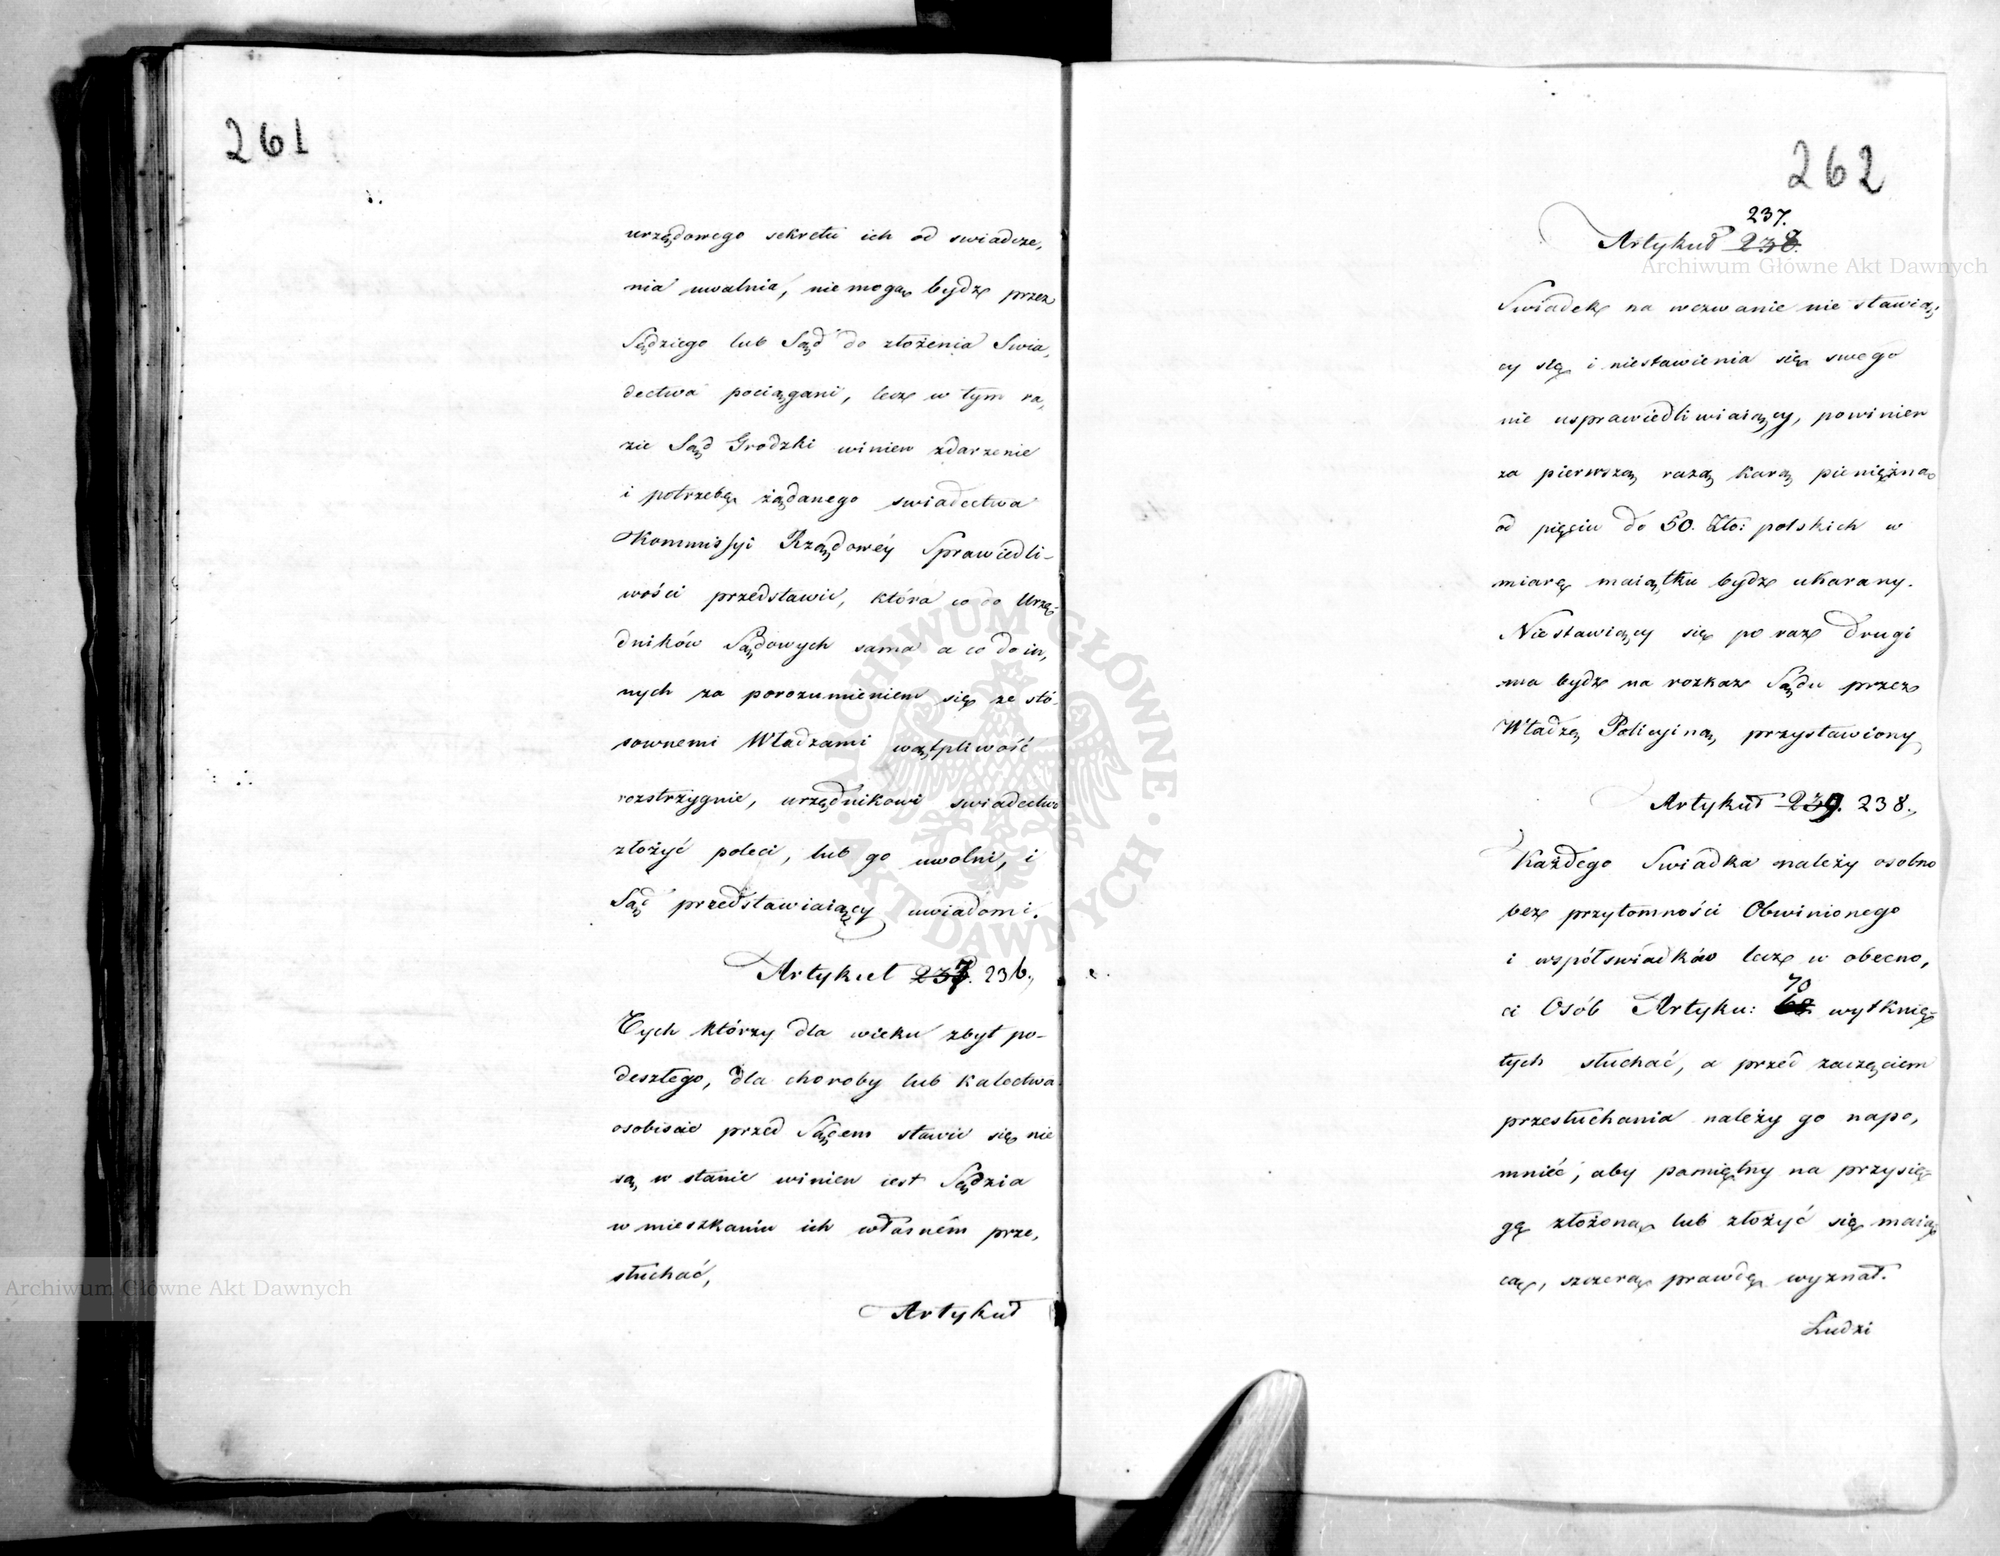 261
urzędowego sekretu ich od swiadcze,
nia uwalnia, nie mogą bydź przez
Sędziego lub Sąd do złożenia Swia,
dectwa pociągani, lecz w tym ra,
zie Sąd Grodzki winien zdarzenie
i potrzebę żądanego swiadectwa
Kommissyi Rządowéy Sprawiedli-
wości przedstawić, która co do Urzę-
dników Sądowych sama a co do in,
nych za porozumieniem się ze stó-
sownemi Władzami wątpliwość
rozstrzygnie, urzędnikowi swiadectwo
złożyć poleci, lub go uwolni, i
Sąd przedstawiaiący uwiadomi.
Artykuł 237. 236.
Tych którzy dla wieku zbyt po-
deszłego, dla choroby lub kalectwa
osobiscie przed Sądem stawić się nie
są w stanie winien iest Sędzia
w mieszkaniu ich własném prze,
słuchać,
Artykuł
262
237.
Artykuł 238.
Swiadek na wezwanie nie stawią,
cy się i niestawienia się swego
nie usprawiedliwiaiący, powinien
za pierwszą razą karą pieniężną
od pięciu do 50. Zło: polskich w
miarę maiątku bydź ukarany.
Niestawiący się po raz drugi
ma bydź na rozkaz Sądu przez
Władzę Policyiną przystawiony,
Artykuł 239. 238.
Każdego Swiadka należy osobno
bez przytomności Obwinionego
i współświadków lecz w obecno,
ci Osób Artyku: 68. 70 wytknię-
tych słuchać, a przed zaczęciem
przesłuchania należy go napo,
mnieć, aby pamiętny na przysię-
gę złożoną lub złożyć się maią
cą, szczerą prawdę wyznał.
Ludzi
Archiwum Główne Akt Dawnych
Archiwum Główne Akt Dawnych
ARCHIWUM GŁÓWNE AKT DAWNYCH